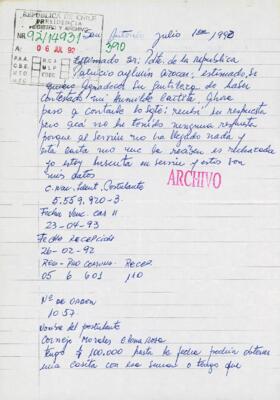 REPUBLICA DE CHILE
PRESIDENCIA
REGISTRO Y ARCHIVO
NR. 92/14931
A: 06 JUL 92
P.A.A. R.C.A.
C.B.E. M.L.P.
390
San Antonio Julio 1 1992
Estimado Sr. Pdte. de la republica
Patricio Aylwin Azocar, estimado Sr
quiero agradecer su gentileza de haber
contestado mi humilde cartita ahora
paso a contarle lo sgte: recibí su respuesta
pero aquí no he tenido ninguna respuesta
porque al serviu no ha llegado nada y
esta carta no me la reciben es rechazada
yo estoy inscrita en serviu y estos son
mis datos
ARCHIVO
c. nac. Ident. Postulante
5.559.920-3.
Fecha Venc.
23-04-93
Fecho Recepcion
26-02-92
Reg-Pro Comuna. Recep.
05 6 601 110
Nº de orden
1057
Nombre del postulante
Cornejo Morales Elena Rosa
tengo $ 100.000 hasta la fecha podria obtener
una casita con esa suma o tengo que